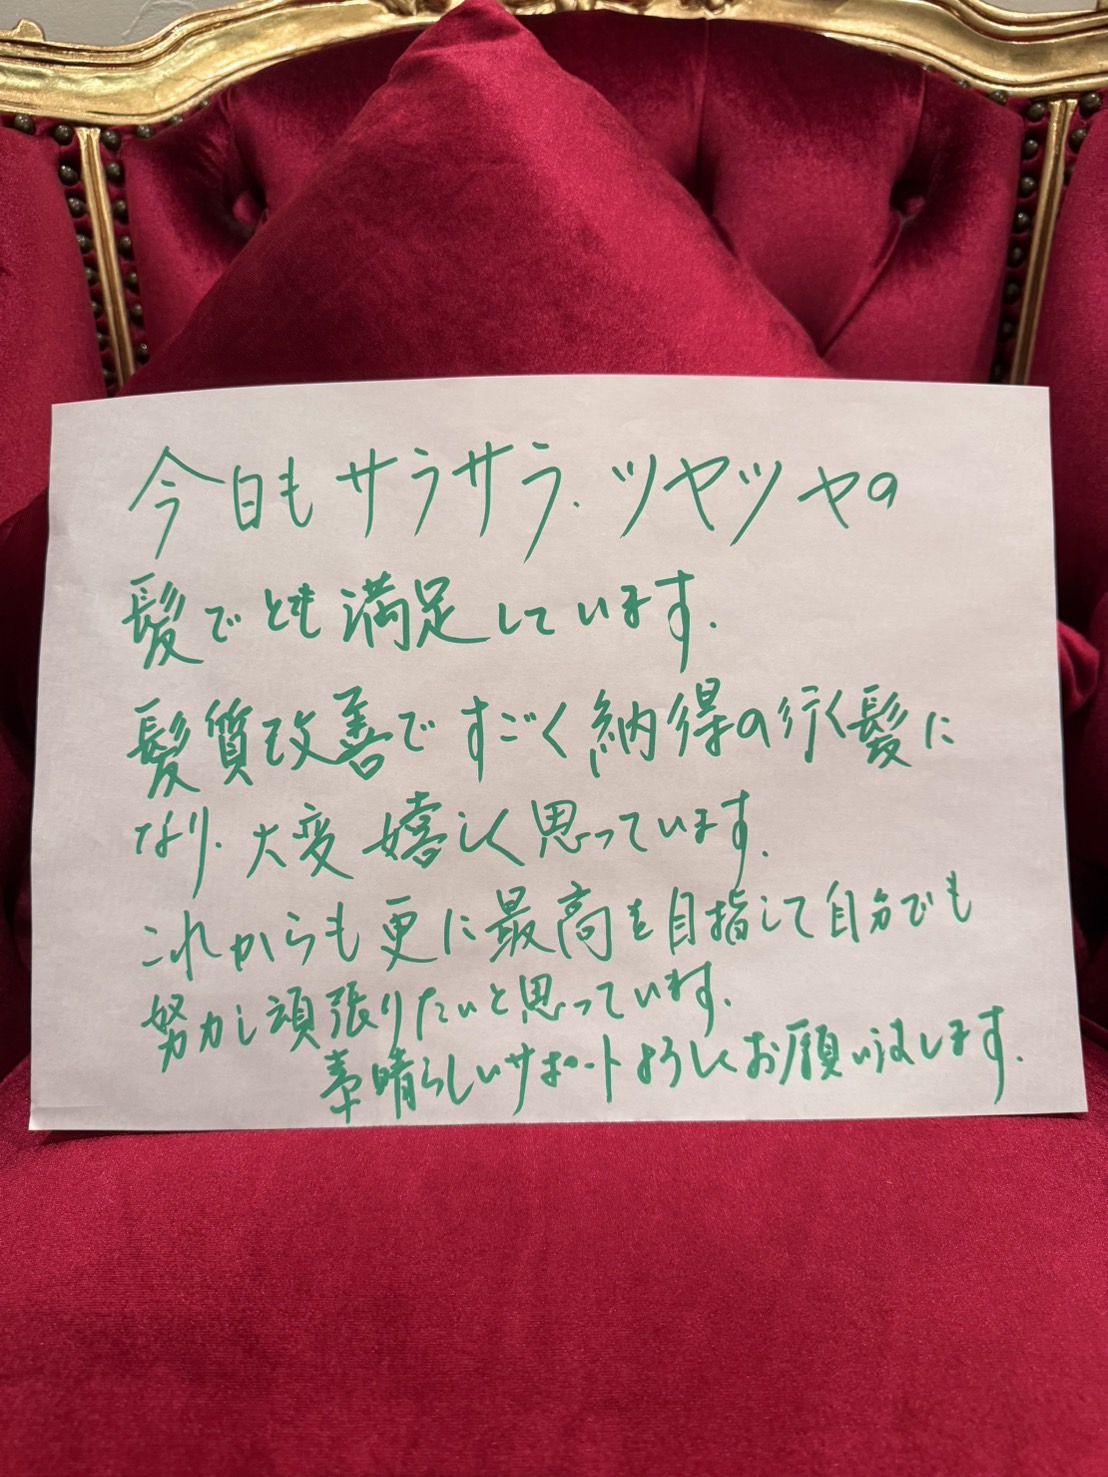 今日もサラサラ、ツヤツヤの
髪でとても満足しています。
髪質改善ですごく納得の行く髪に
なり、大変嬉しく思っています。
これからも更に最高を目指して自分でも
努力し頑張りたいと思っています。
素晴らしいサポートよろしくお願い致します。